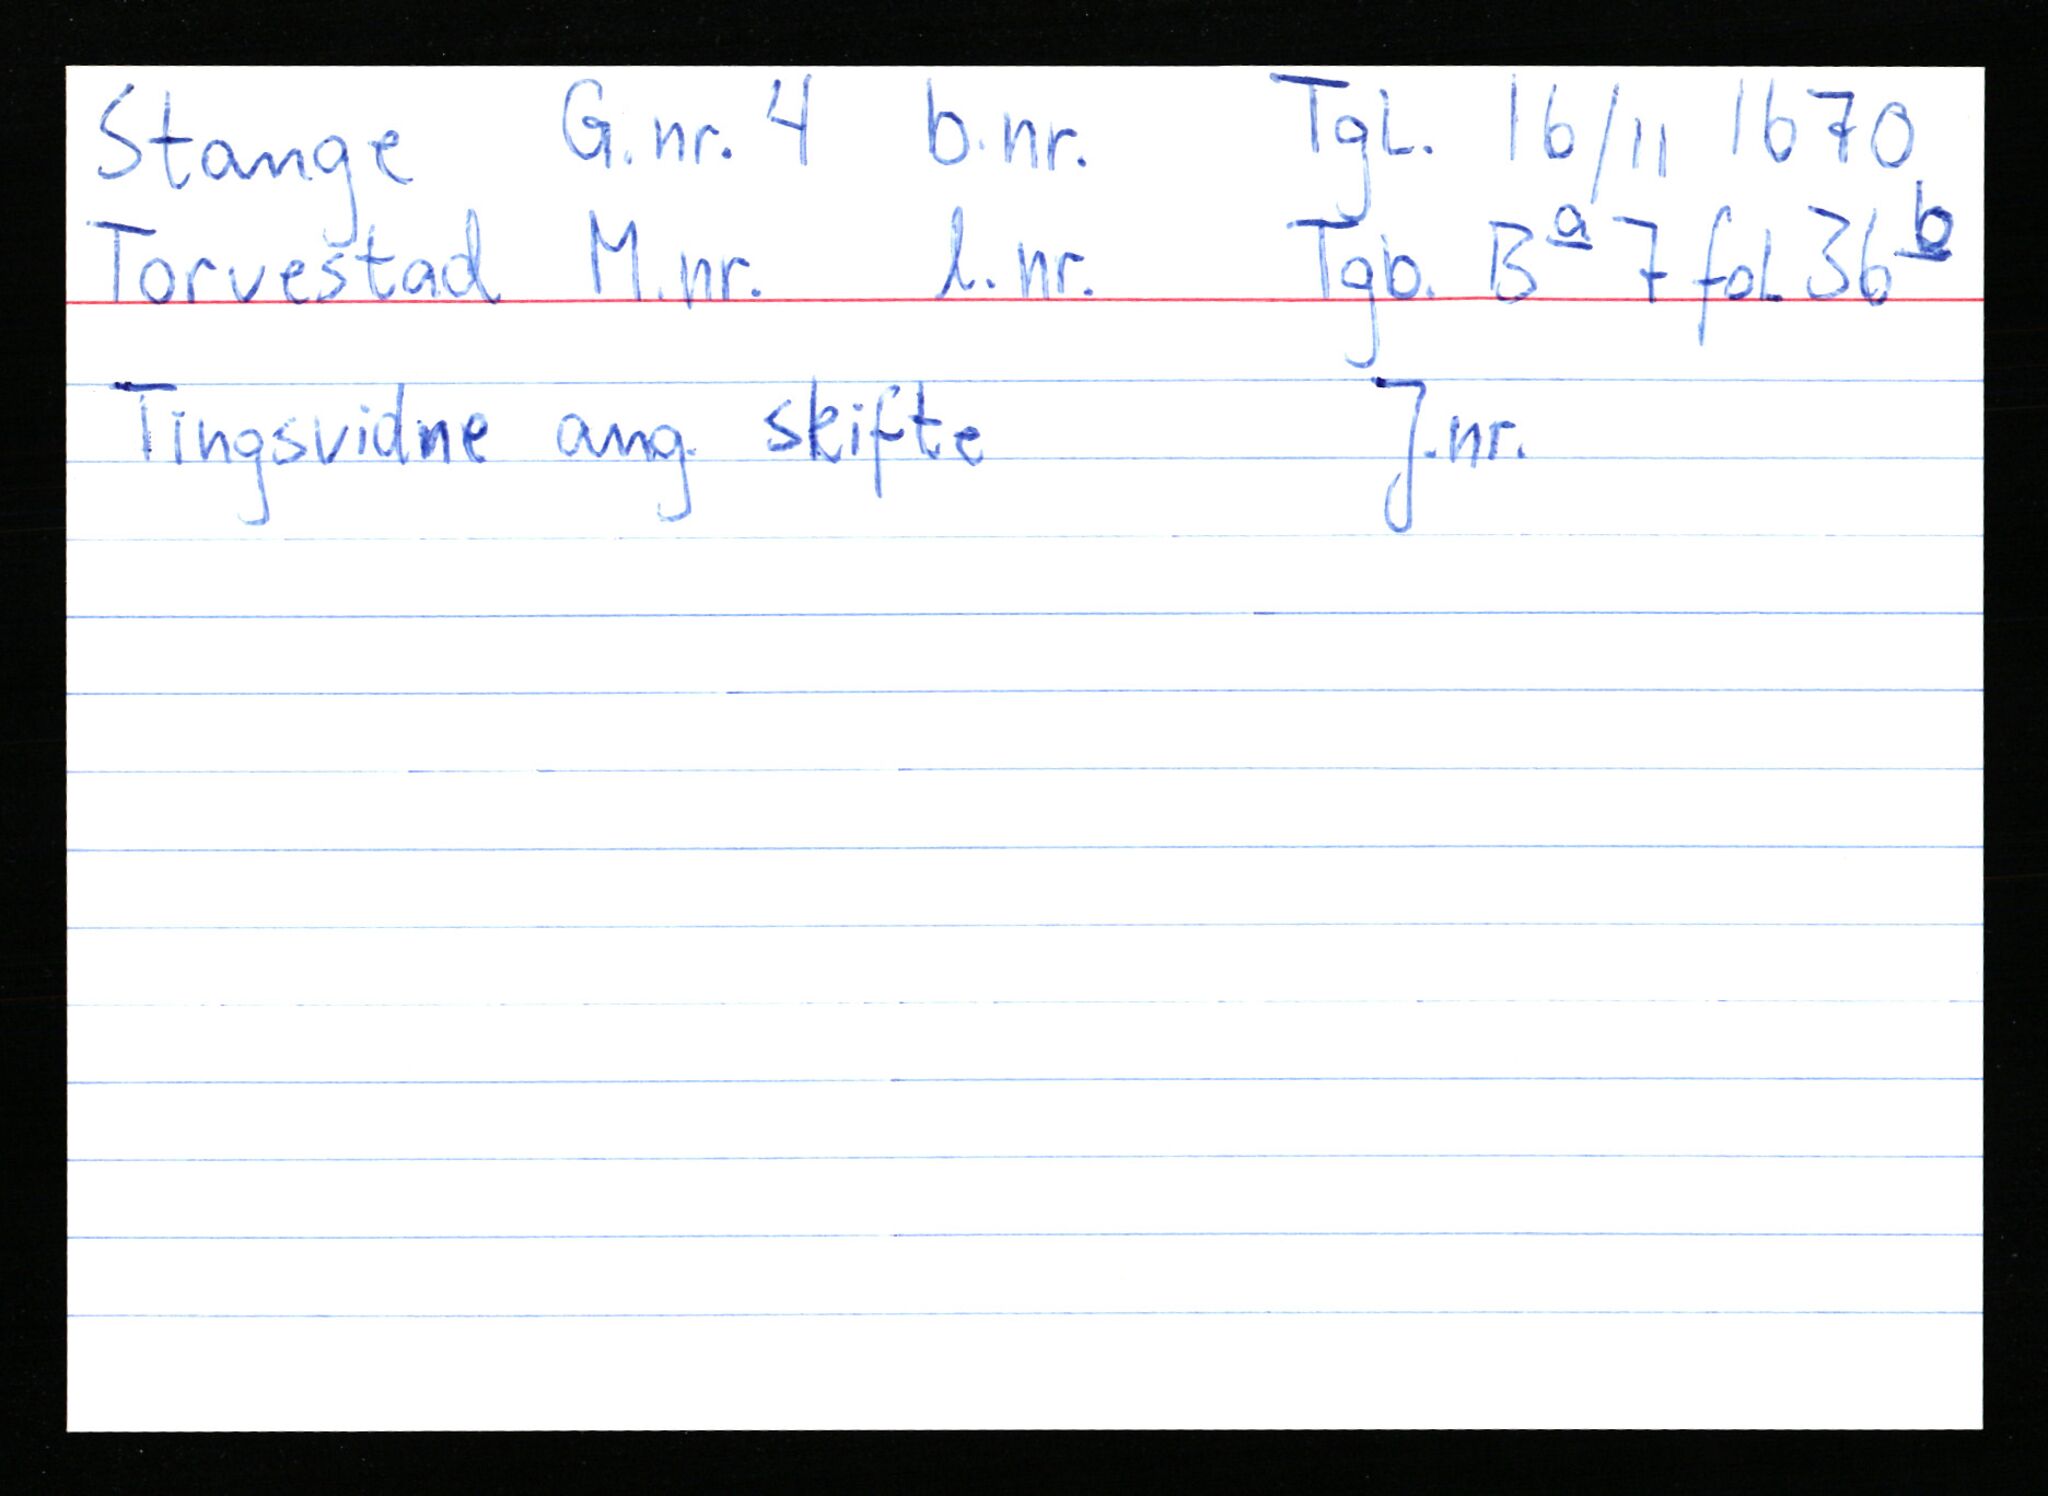 Stange G.nr. 4 b.nr. Tgl. 16/11 1670
Torvestad M.nr. l.nr. Tgb. Bª 7 fol 36ᵇ
Tingsvidne ang. skifte J.nr.